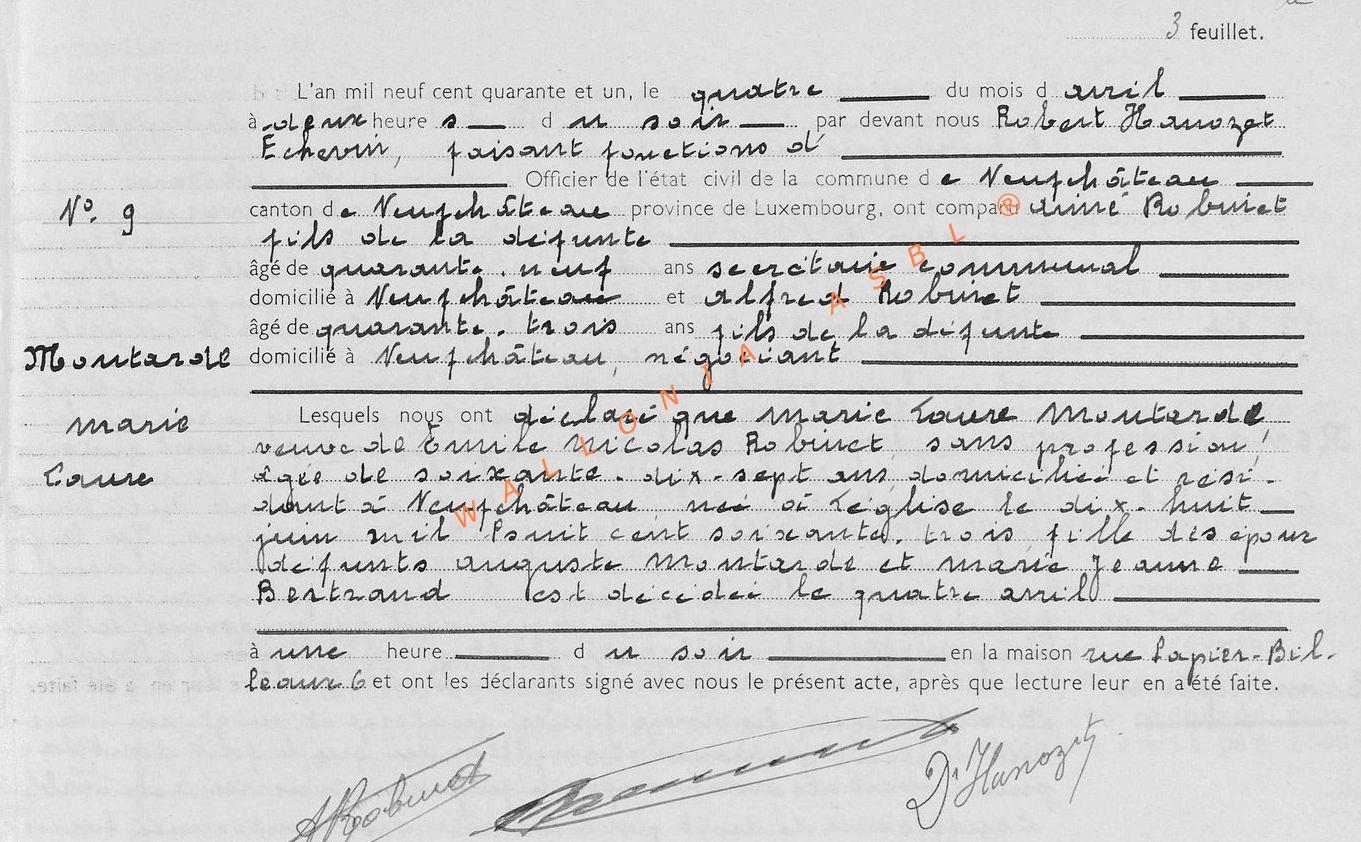 3 feuillet.
L'an mil neuf cent quarante et un, le quatre du mois d avril
à deux heure s d u soir par devant nous Robert Hanozet
Echevin, faisant fonctions d'
Officier de l'état civil de la commune d e Neufchâteau
N° 9
canton de Neufchâteau province de Luxembourg, ont comparu Aimé Robinet
fils de la défunte
âgé de quarante-neuf ans secrétaire communal
domicilié à Neufchâteau et Alfred Robinet
âgé de quarante-trois ans fils de la défunte
Moutarde
domicilié à Neufchâteau, négociant
Lesquels nous ont déclaré que Marie Laure Moutarde
Marie
veuve de Emile Nicolas Robinet, sans profession,
Laure
âgée de soixante-dix-sept ans, domiciliée et rési-
dant à Neufchâteau née à Léglise le dix-huit
juin mil huit cent soixante-trois, fille des époux
défunts Auguste Moutarde et Marie Jeanne
Bertrand est décédée le quatre avril
à une heure d u soir en la maison rue Papier-Bil-
leaux 6 et ont les déclarants signé avec nous le présent acte, après que lecture leur en a été faite.
WALLONIA ASBL ®
ARobinet
Dr Hanozet